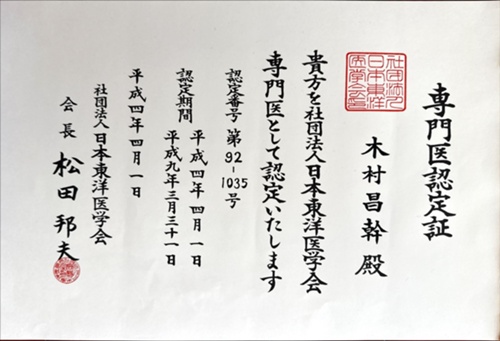 専門医認定証
社団法人
日本東洋
医学会
木村昌幹殿
貴方を社団法人日本東洋医学会
専門医として認定いたします
認定番号 第92-1035号
認定期間 平成四年四月一日
平成九年三月三十一日
平成四年四月一日
社団法人日本東洋医学会
会長 松田邦夫